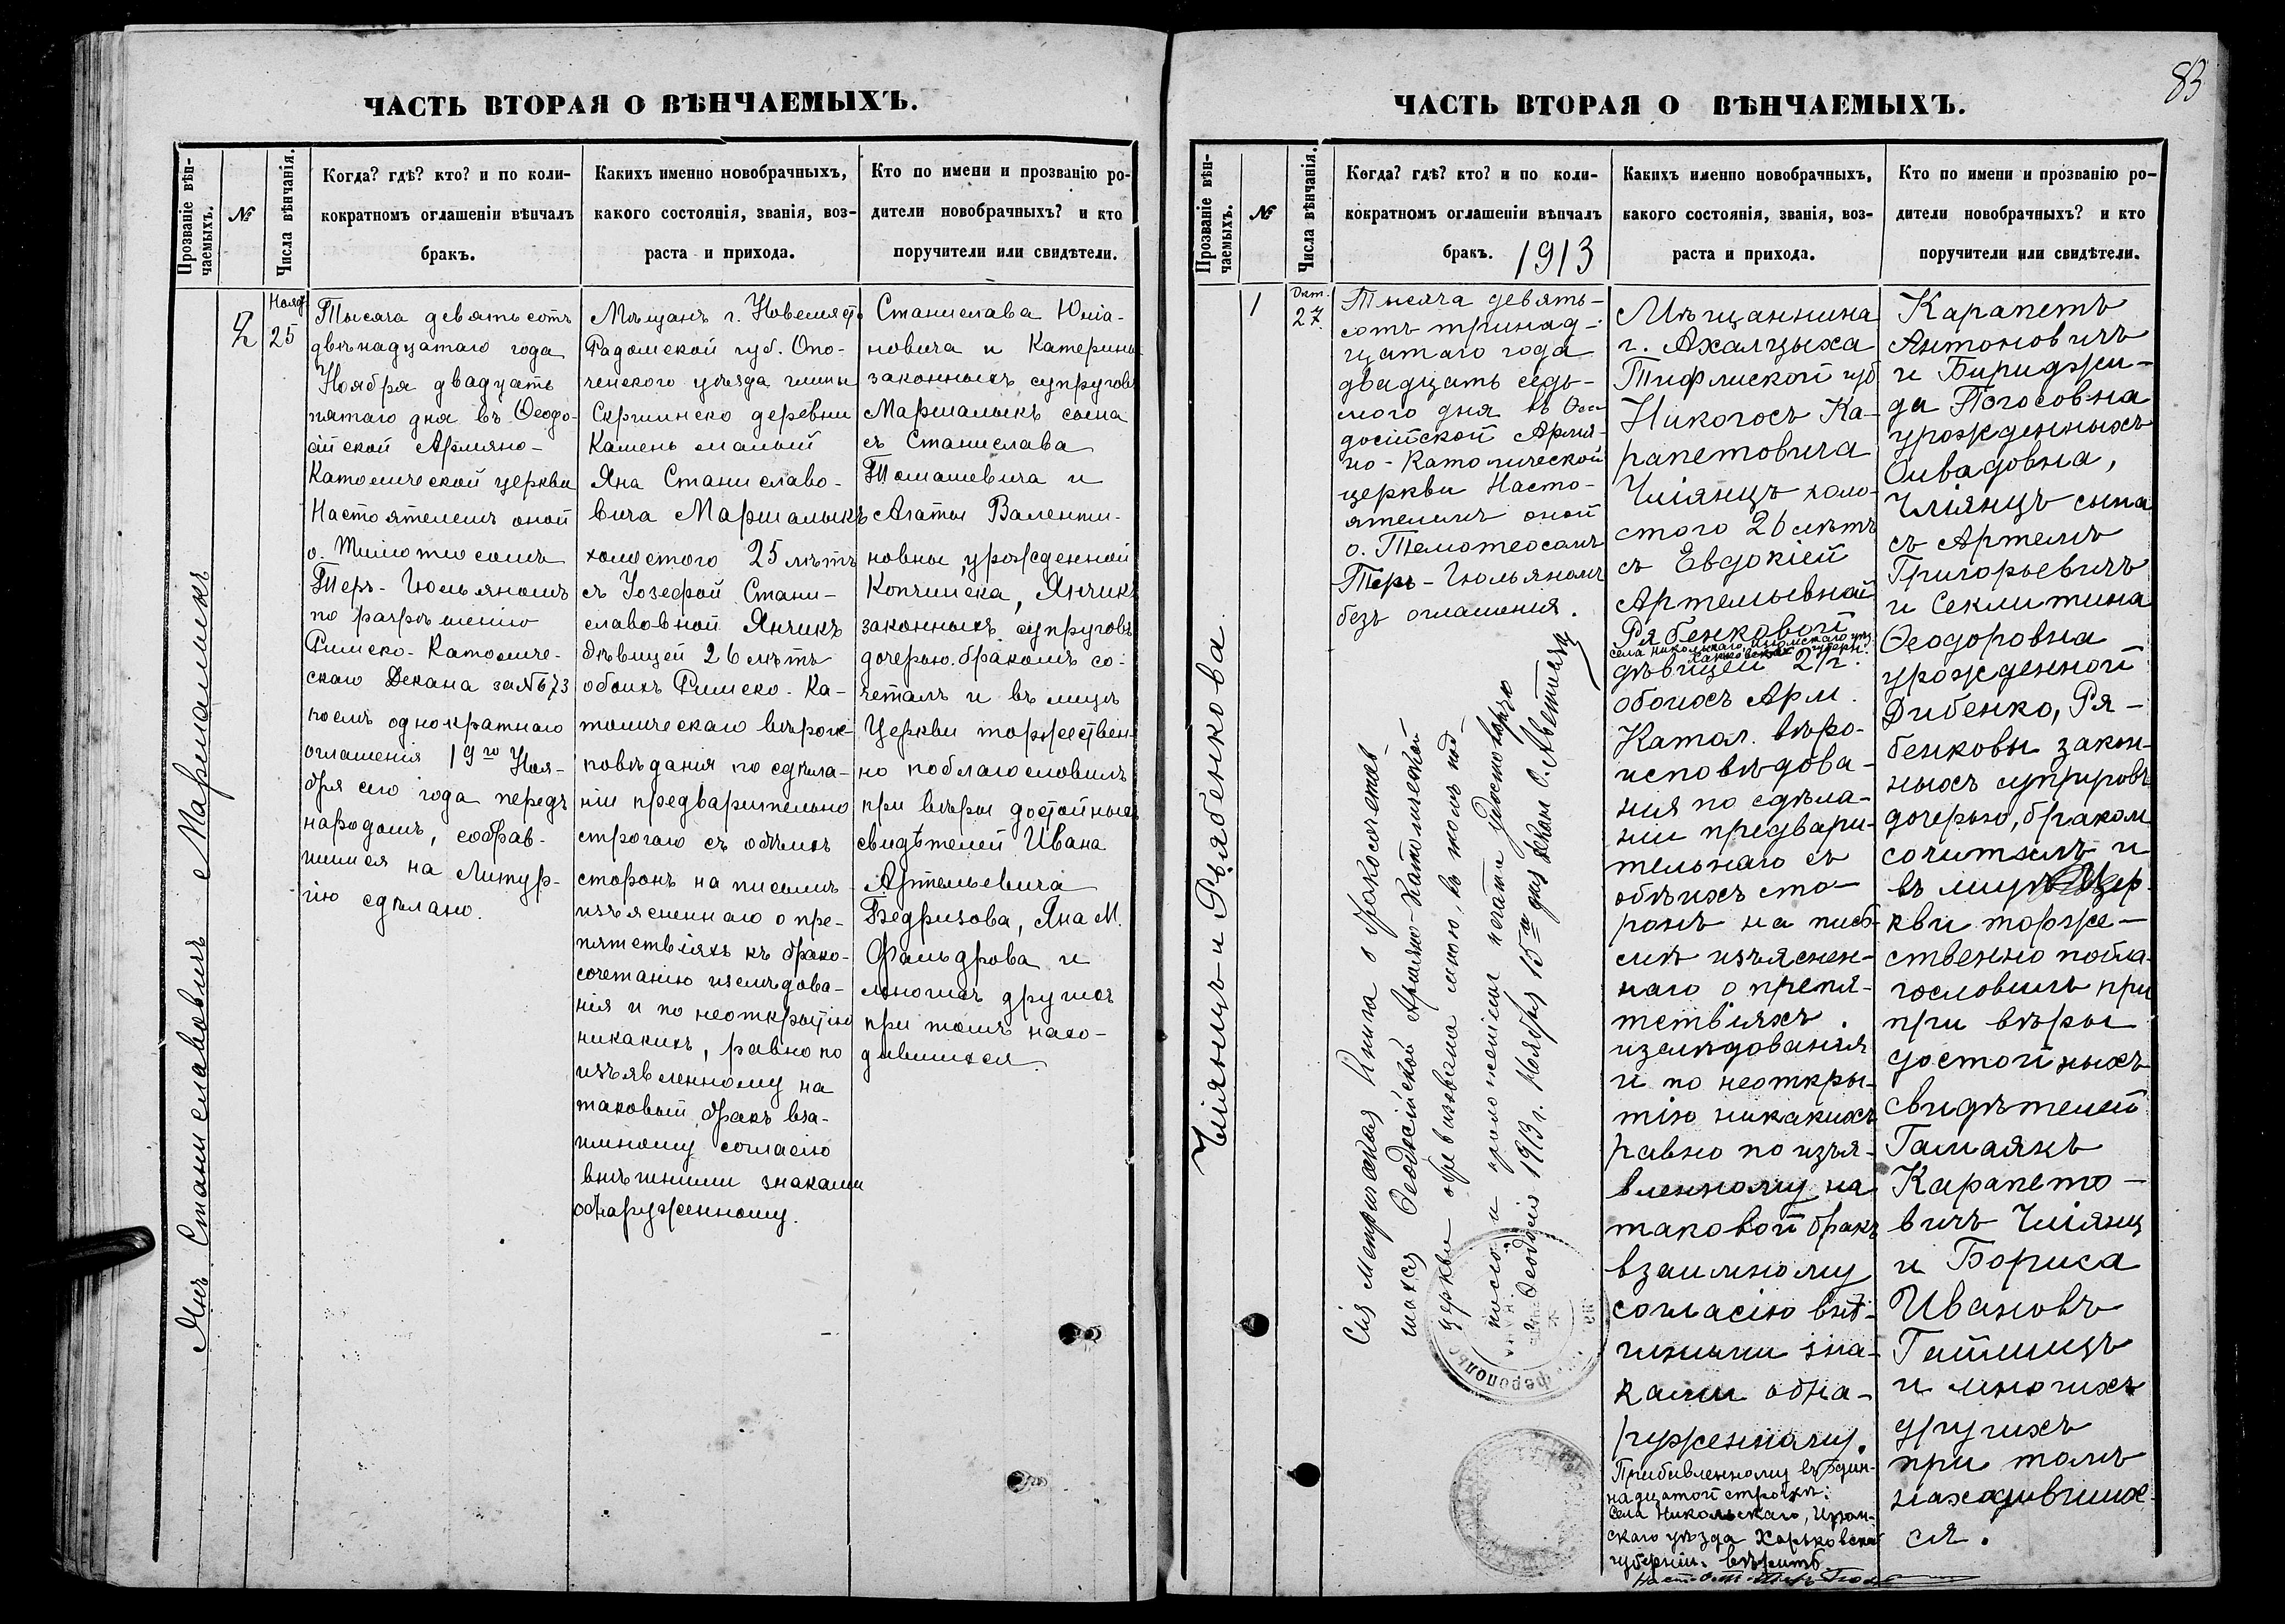 ЧАСТЬ ВТОРАЯ О ВѢНЧАЕМЫХЪ.
Прозваніе вѣн-
чаемыхъ.
№
Числа вѣнчанія.
Когда? гдѣ? кто? и по коли-
кократномъ оглашеніи вѣнчалъ
бракъ.
Какихъ именно новобрачныхъ,
какого состоянія, званія, воз-
раста и прихода.
Кто по имени и прозванію ро-
дители новобрачныхъ? и кто
поручители или свидѣтели.
Янъ Станиславовичъ Маршалыкъ
2
25
Тысяча девятьсотъ
двѣнадцатаго года
Ноября двадцать
пятаго дня въ Ѳеодо-
сійской Армяно-
Католической церкви
Настоятелемъ оной
о. Тимотеосомъ
Теръ-Гюльяномъ
по разрѣшенію
Римско-Католиче-
скаго Декана за № 673
послѣ однократнаго
оглашенія 19го Ноя-
бря сего года передъ
народомъ, собрав-
шимся на Литур-
гію сдѣлано.
Мѣщанъ г. Новемясто
Радомской губ. Опо-
ченского уѣзда гмины
деревни
Камень малый
Яна Станиславо-
вича Маршалыкъ
холостого 25 лѣтъ
съ Іозефой Стани-
славовной Янчикъ
дѣвицей 26 лѣтъ
обоихъ Римско-Ка-
толическаго вѣроис-
повѣданія по сдѣла-
ніи предварительно
строгаго съ обѣихъ
сторонъ на письмѣ
изъясненнаго о пре-
пятствіяхъ къ брако-
сочетанію изслѣдова-
нія и по неоткрытію
никакихъ, равно по
изъявленному на
таковый бракъ вза-
имному согласію
внѣшними знаками
обнаруженному.
Станислава Юлiа-
новича и Катерины
законныхъ супруговъ
Маршалыкъ сына
съ Станислава
Томашевича и
Агаты Валенти-
новны, урожденной
Копчинска, Янчикъ
законныхъ супруговъ
дочерью, бракомъ со-
четалъ и въ лицѣ
Церкви торжествен-
но поблагословилъ
при вѣры достойныхъ
свидѣтелей Ивана
Артемьевича
Бедризова, Яна М.
Фальдрова и
многихъ другихъ
при томъ нахо-
дившихся.
83
ЧАСТЬ ВТОРАЯ О ВѢНЧАЕМЫХЪ.
Прозваніе вѣн-
чаемыхъ.
№
Числа вѣнчанія.
Когда? гдѣ? кто? и по коли-
кократномъ оглашеніи вѣнчалъ
бракъ. 1913
Какихъ именно новобрачныхъ,
какого состоянія, званія, воз-
раста и прихода.
Кто по имени и прозванію ро-
дители новобрачныхъ? и кто
поручители или свидѣтели.
Чиліянцъ и Рябенкова
1
Окт.
27.
Тысяча девять-
сотъ тринад-
цатаго года
двадцать седь-
мого дня въ Ѳео-
досійской Армя-
но-Католической
церкви Насто-
ятелемъ оной
о. Темотеосомъ
Теръ-Гюльяномъ
безъ оглашенія.
Сія Метрическая Книга о бракосочетав-
шихся Ѳеодосійской Армяно-Католической
церкви обревизована мною, въ томъ под-
писью и приложеніемъ печати удостовѣряю
г. Ѳеодосія 1913 г. Ноября 15го дня Деканъ О.
Мѣщанина
г. Ахалцыха
Тифлиской губ
Никогосъ Ка-
рапетовича
холо-
стого 26 лѣтъ
съ Евдокіей
Артемьевной
Рябенковой
села Никольскаго, Изюмскаго уѣз.
Харьковской губерн.
дѣвицей 21 г.
обоихъ Арм.
Катол. вѣро-
исповѣдова-
ния по сдѣла-
ніи предвари-
тельнаго съ
обѣихъ сто-
ронъ на пись-
мѣ изъяснен-
наго о препя-
тствіяхъ.
изслѣдованія
и по неоткры-
тію никакихъ
равно по изъя-
вленному на
таковой бракъ
взаимному
согласію внѣ-
шними зна-
ками обна-
руженному.
Прибавленному въ один-
надцатой строкѣ:
села Никольскаго, Изюм-
скаго уѣзда Харьковской
губерніи. вѣрить
Карапетъ
Антоновичъ
и Бириджи-
да Погосовна
урожденныхъ
сына
съ Артемъ
Григорьевичъ
и Секлитина
Ѳеодоровна
урожденной
Дибенко, Ря-
бенковы закон-
ныхъ супруговъ
дочерью, браком
сочиталъ и
въ лицѣ Цер-
кви торже-
ственно побла-
гословилъ при
при вѣры
достойныхъ
свидѣтелей
Гамаякъ
Карапето-
вичъ
и Бориса
Ивановъ
и многихъ
другихъ
при томъ
находивших-
ся.